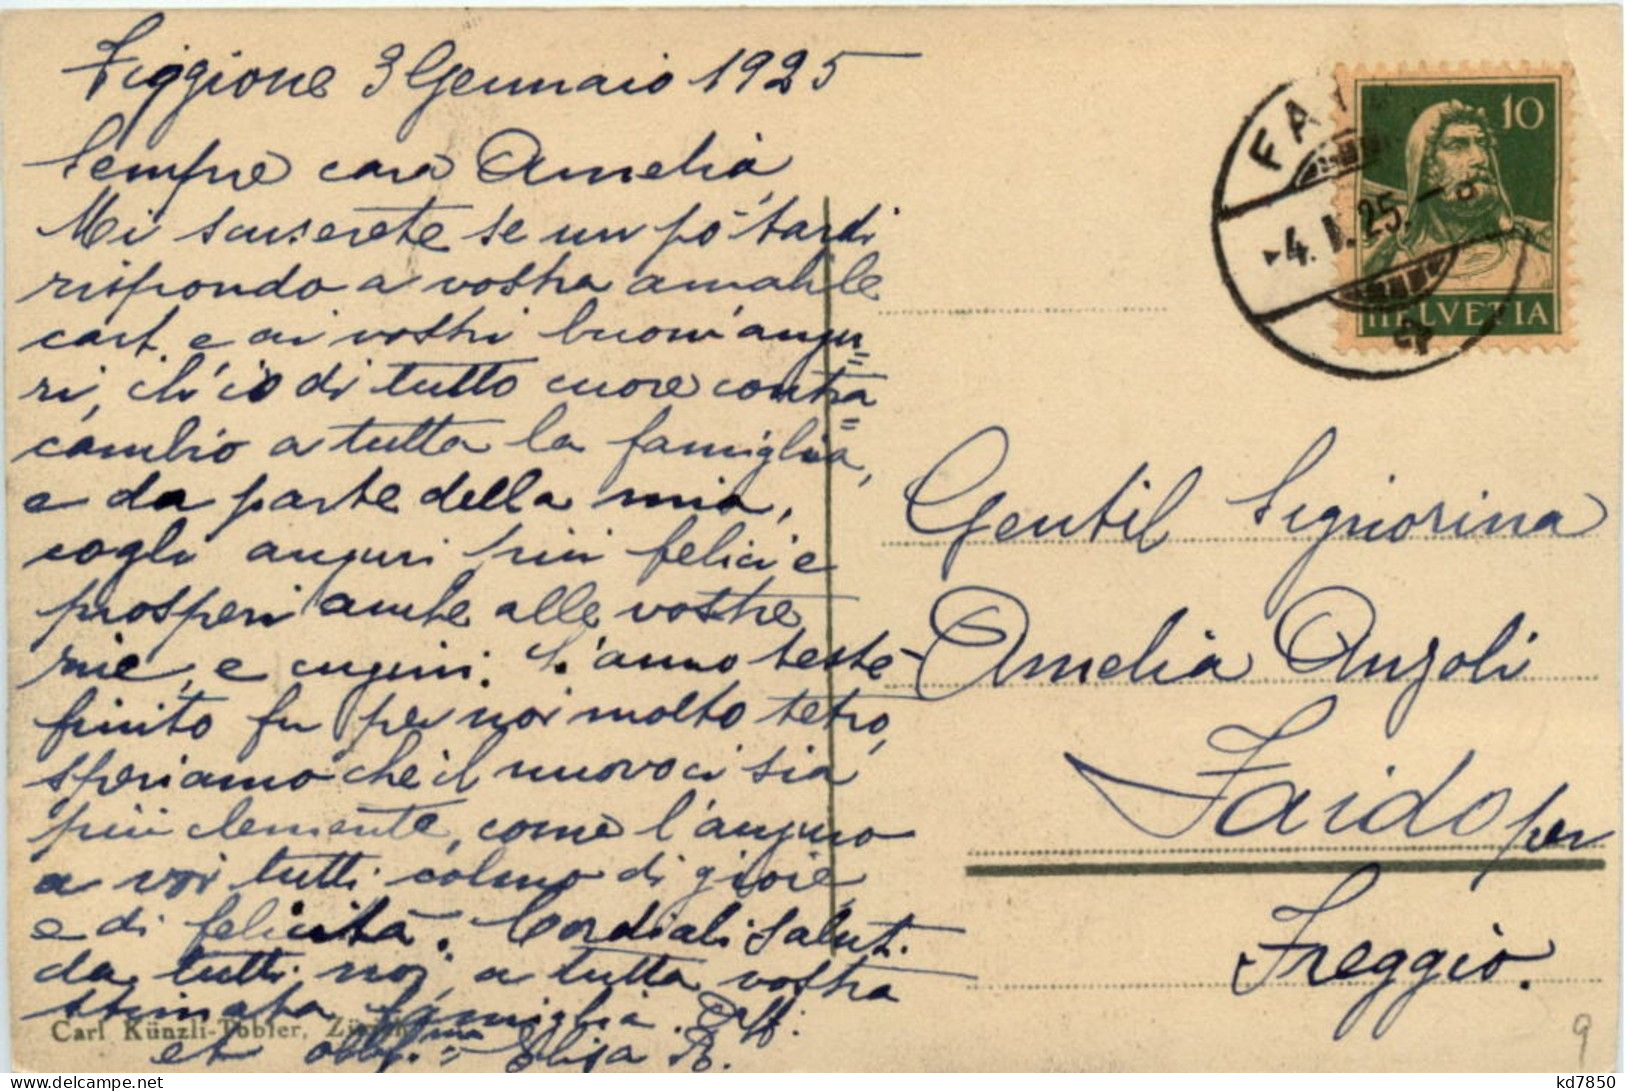 Figgione 3 Gennaio 1925
Sempre cara Amelia,
Mi scuserete se un pò tardi
rispondo a vostra amabile
cart. e ai vostri buoni augu=
ri, ch'io di tutto cuore contra=
cambio a tutta la famiglia,
e da parte della mia,
cogli auguri più felici e
prosperi anche alle vostre
zie, e cugini. L'anno testè
finito fu per noi molto tetro,
speriamo che il nuovo ci sia
più clemente, come l'auguro
a voi tutti colmo di gioie,
e di felicità. Cordiali saluti
da tutti noi, a tutta vostra
stimata famiglia. Aff:
et obblg.ma Elisa R.
Carl Künzli-Tobler, Zürich
10
HELVETIA
FA
4. I. 25. - 8
Gentil Signorina
Amelia Anzoli
Faido per
Freggio.
9
kd7850